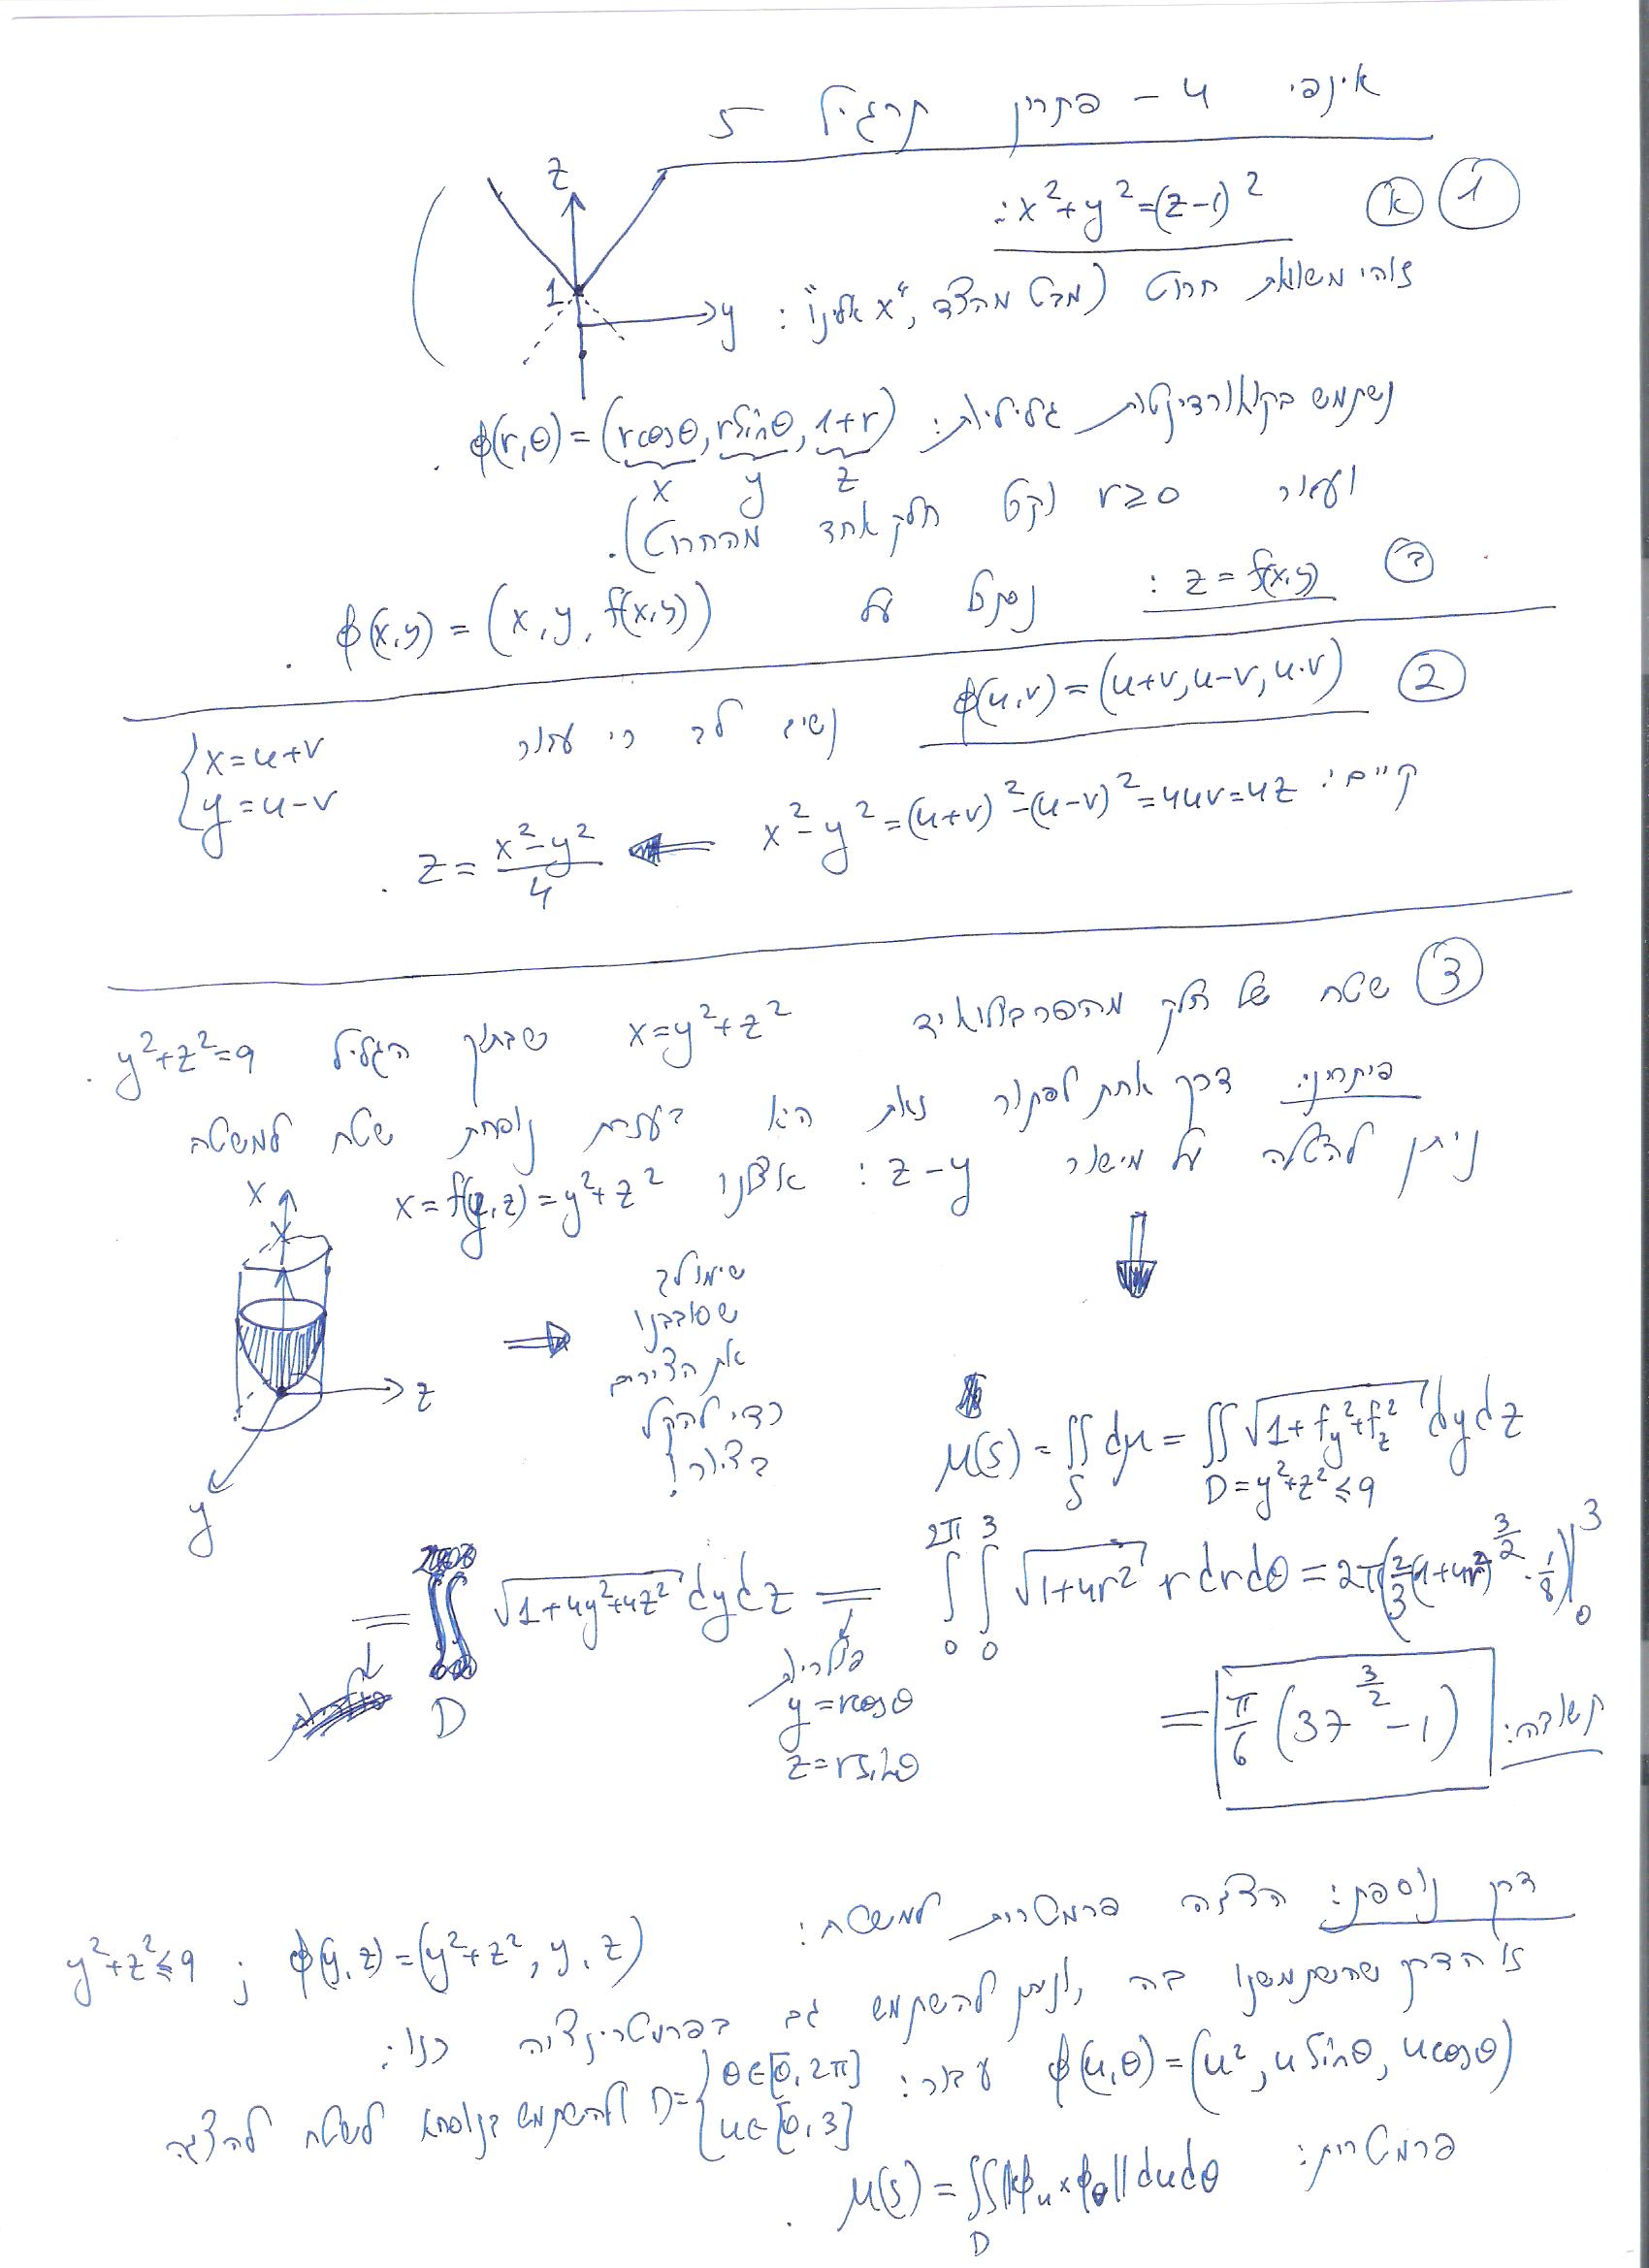 אינפי 4 - פתרון תרגיל 5
① ⓐ x²+y²=(z-1)² :
זוהי משוואת חרוט (מבט מהצד, "x אלינו" :
z
1
y
נשתמש בקואורדינטות גליליות: φ(r,θ)=(rcosθ, rsinθ, 1+r) .
x y z
ועבור r≥0 (קט חלק אחד מהחרוט).
ⓑ z=f(x,y) : נסתכל על φ(x,y)=(x,y,f(x,y)) .
② φ(u,v)=(u+v,u-v,u·v) נשים לב כי עבור { x=u+v
y=u-v
קיים: x²-y²=(u+v)²-(u-v)²=4uv=4z ⇐ z=(x²-y²)/4 .
③ שטח של חלק מהפרבולואיד x=y²+z² שבתוך הגליל y²+z²=9 .
פיתרון: דרך אחת לפתור זאת היא בעזרת נוסחת שטח למשטח
ניתן להטלה על מישור z-y : אצלנו x=f(y,z)=y²+z²
x
z
y
שימו לב
שסובבנו
את הצירים
כדי להקל
בציור!
⇒
μ(S)=∬_S dμ=∬_{D=y²+z²≤9} √(1+f_y²+f_z²) dydz
=∬_D √(1+4y²+4z²) dydz = ∫_0^{2π}∫_0^3 √(1+4r²) r drdθ = 2π(2/3(1+4r²)^{3/2}·1/8)|_0^3
פולריות
y=rcosθ
z=rsinθ
תשובה: = π/6 (37^{3/2}-1)
דרך נוספת: הצגה פרמטרית למשטח: φ(y,z)=(y²+z²,y,z) ; y²+z²≤9
זו הדרך שהשתמשנו בה, וניתן להשתמש גם בפרמטריזציה כגון:
φ(u,θ)=(u²,u sinθ,u cosθ) עבור: D={ θ∈[0,2π]
u∈[0,3] ולהשתמש בנוסחא לשטח להצגה
פרמטרית: μ(S)=∬_D ||φ_u×φ_θ||dudθ .